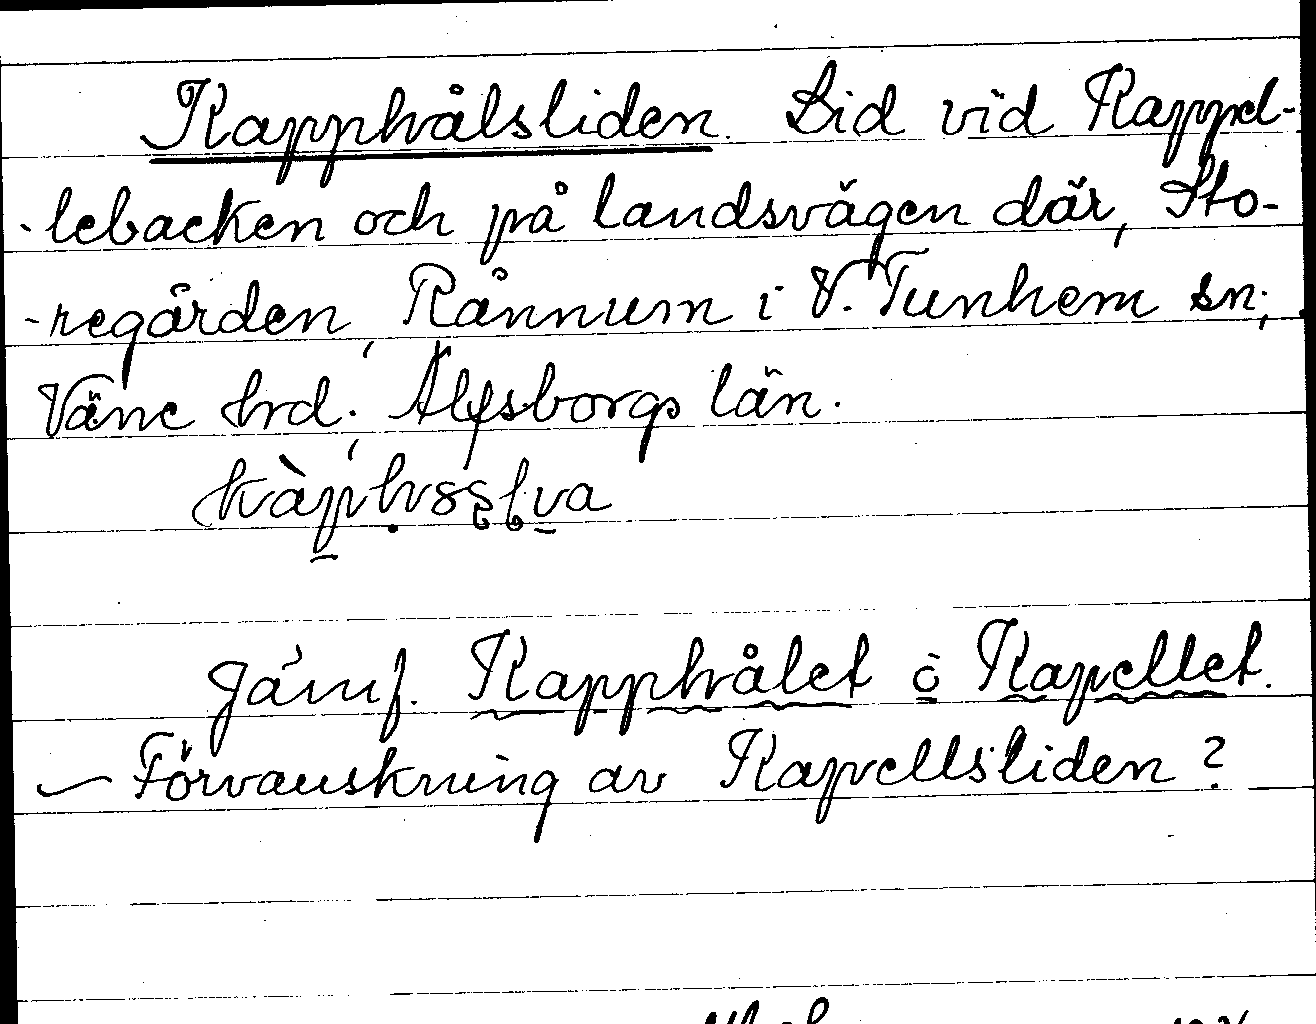 Kapphålsliden. Lid vid Kappel-
-lebacken och på landsvägen där, Sto-
-regården, Rånnum i V. Tunhem sn;
Väne hrd; Älfsborgs län.
Jämf. Kapphålet o Kapellet.
– Förvanskning av Kapellsliden?